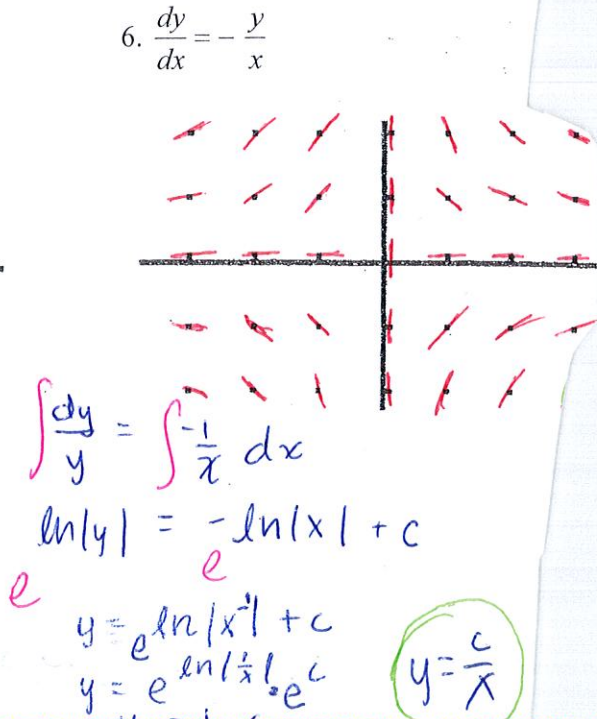 6. dy/dx = - y/x
∫ dy/y = ∫ -1/x dx
ln|y| = -ln|x| + c
e e
y = e^ln|x^-1| + c
y = e^ln|1/x| · e^c
y = c/x